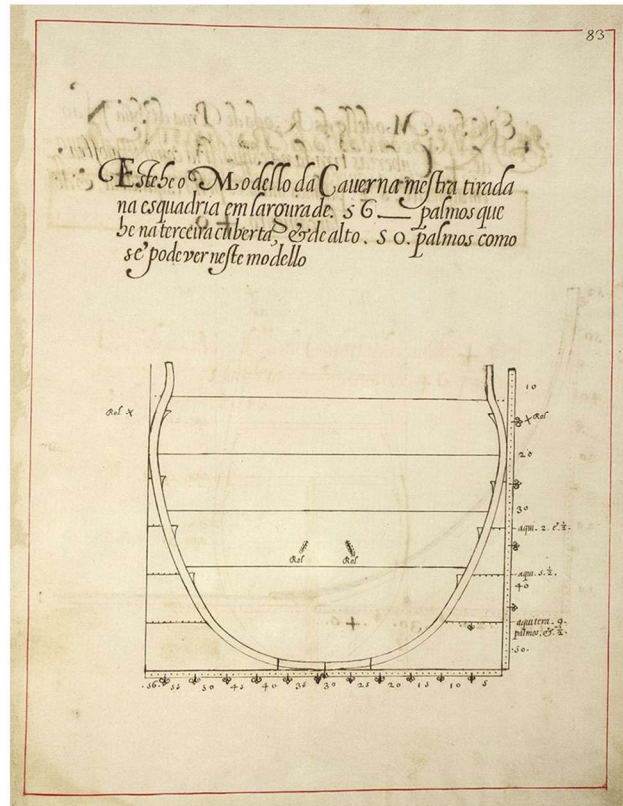 83
Este he o Modello da Cauerna mestra tirada
na esquadria em largura de. 56 palmos que
he na terceira cuberta, & de alto. 50. palmos como
se pode ver neste modello
10
Rol
Rol
20
30
aqui. 2. e ½.
Rol Rol
aqui. 5. ½.
40
aqui tem. 9.
palmos. & ½.
50.
.56. 55 50 45 40 35 30 25 20 15 10 5